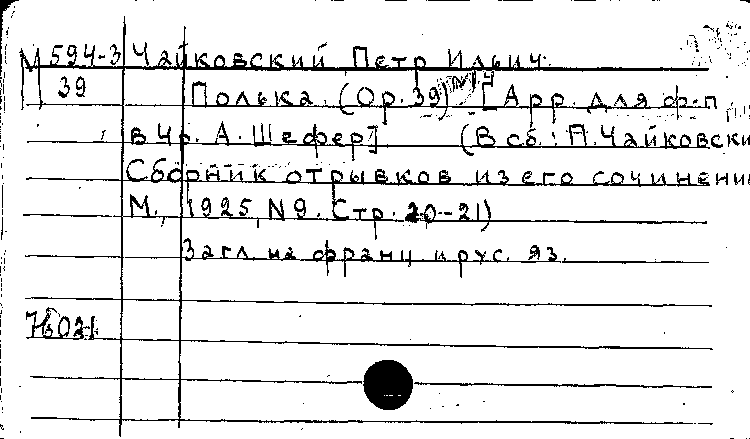 М 594-3 Чайковский Петр Ильич.
39 Полька. (Op. 39) №14 [Арр. для ф-п
в 4 р. А. Шефер] (В сб.: П. Чайковски
Сборник отрывков из его сочинени
М., 1925, N9. Стр. 20-21)
Загл. на франц. и рус. яз.